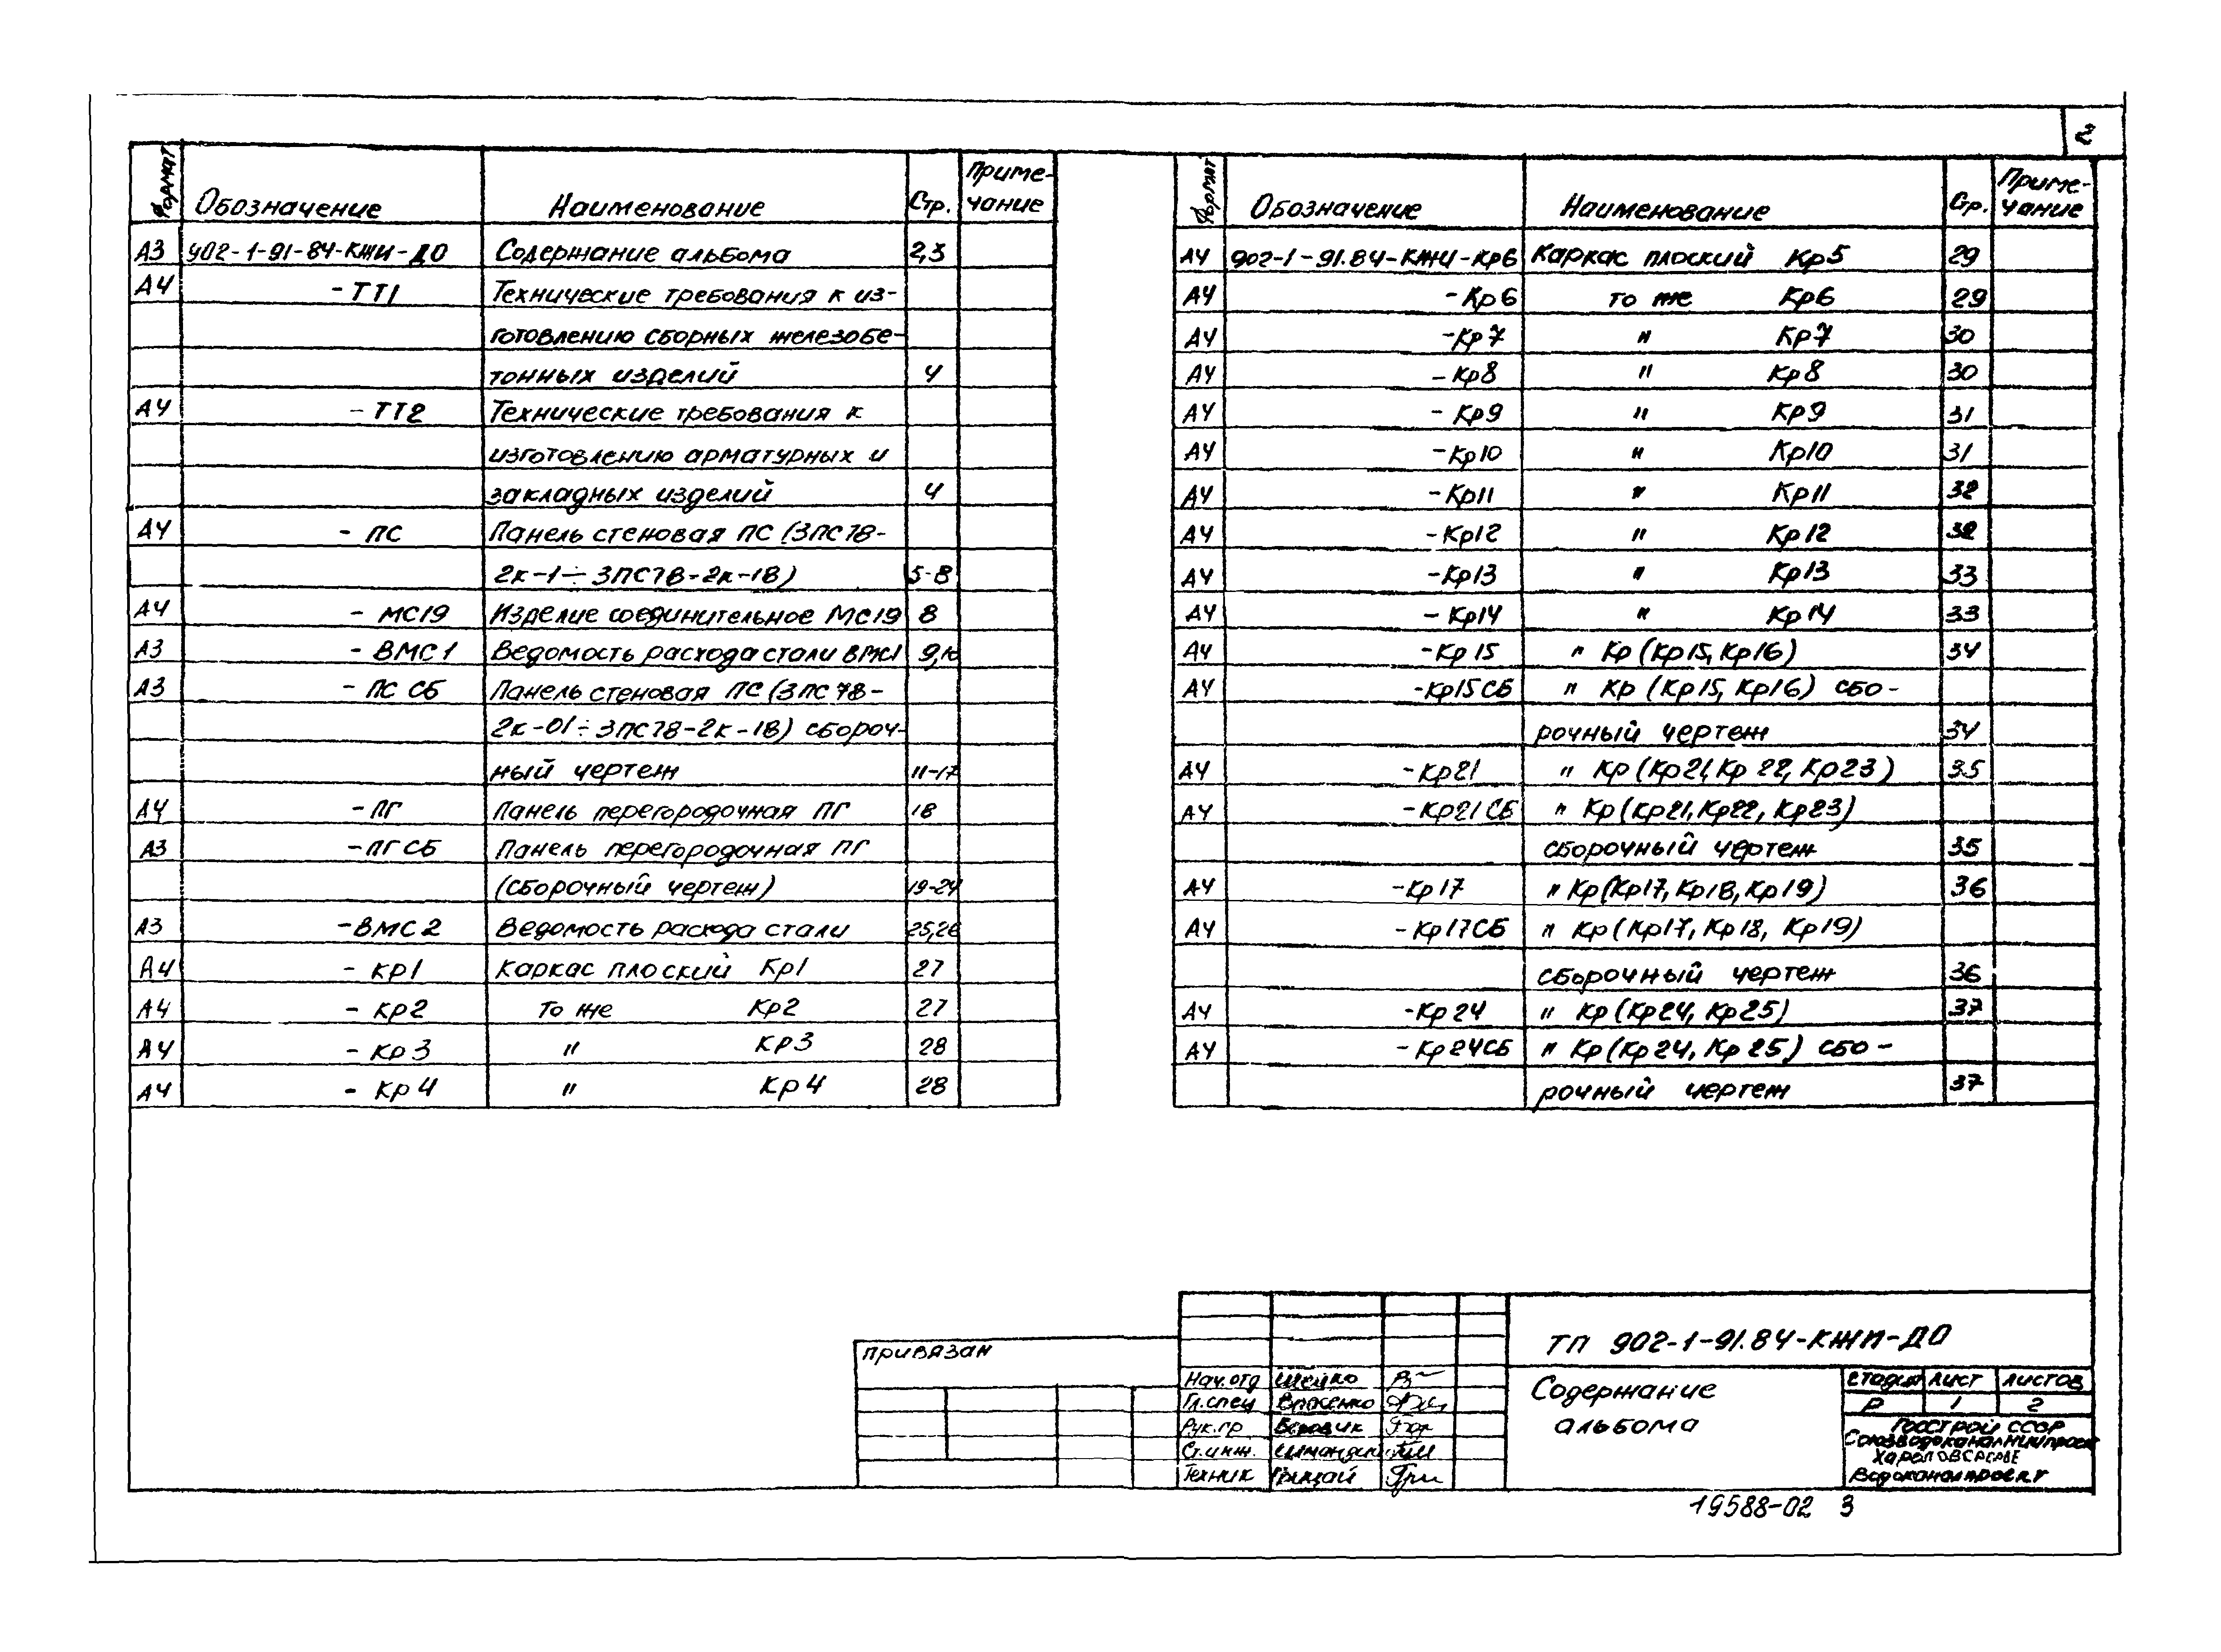 2
Формат Обозначение Наименование Стр. Приме-
чание
А3 902-1-91-84-КЖИ-ДО Содержание альбома 2,3
А4 -ТТ1 Технические требования к из-
готовлению сборных железобе-
тонных изделий 4
А4 -ТТ2 Технические требования к
изготовлению арматурных и
закладных изделий 4
А4 - ПС Панель стеновая ПС (3ПС78-
2к-1÷3ПС78-2к-18) 5-8
А4 - МС19 Изделие соединительное МС19 8
А3 - ВМС1 Ведомость расхода стали ВМС1 9,10
А3 - ПС СБ Панель стеновая ПС (3ПС78-
2к-01÷3ПС78-2к-18) сбороч-
ный чертеж 11-17
А4 -ПГ Панель перегородочная ПГ 18
А3 -ПГ СБ Панель перегородочная ПГ
(сборочный чертеж) 19-24
А3 -ВМС2 Ведомость расхода стали 25,26
А4 - кр1 Каркас плоский Кр1 27
А4 - кр2 То же Кр2 27
А4 - Кр3 " Кр3 28
А4 - Кр4 " Кр4 28
Формат Обозначение Наименование Ср. Приме-
чание
А4 902-1-91.84-КЖИ-Кр6 Каркас плоский Кр5 29
А4 -Кр6 то же Кр6 29
А4 -Кр7 " Кр7 30
А4 -Кр8 " Кр8 30
А4 - Кр9 " Кр9 31
А4 -Кр10 " Кр10 31
А4 -Кр11 " Кр11 32
А4 -Кр12 " Кр12 32
А4 -Кр13 " Кр13 33
А4 - Кр14 " Кр14 33
А4 -Кр15 " Кр (Кр15, Кр16) 34
А4 -Кр15СБ " Кр (Кр15, Кр16) сбо-
рочный чертеж 34
А4 -Кр21 " Кр (Кр21, Кр22, Кр23) 35
А4 -Кр21СБ " Кр (Кр21, Кр22, Кр23)
сборочный чертеж 35
А4 -Кр17 " Кр (Кр17, Кр18, Кр19) 36
А4 -Кр17СБ " Кр (Кр17, Кр18, Кр19)
сборочный чертеж 36
А4 -Кр24 " Кр (Кр24, Кр25) 37
А4 -Кр24СБ " Кр (Кр24, Кр25) сбо-
рочный чертеж 37
привязан
ТП 902-1-91.84-КЖИ-ДО
Нач.отд Шейко
Гл.спец Власенко
Рук.гр Боровик
Ст.инж.
Техник
Содержание
альбома
стадия лист листов
Р 1 2
Госстрой СССР
Союзводоканалниипроект
Харьковский
Водоканалпроект
19588-02 3